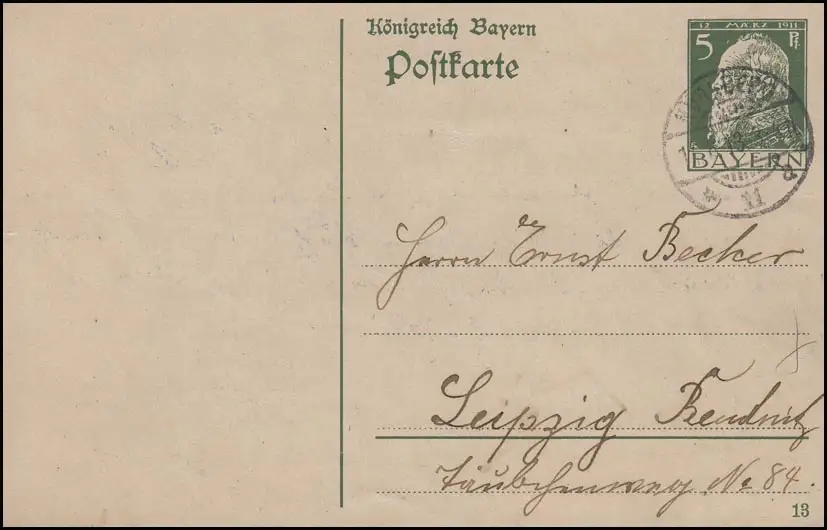 Königreich Bayern
Postkarte
12 MÄRZ 1911
5 Pf.
BAYERN
Herrn Ernst Becker
Leipzig Reudnitz
Täubchenweg No 84.
13